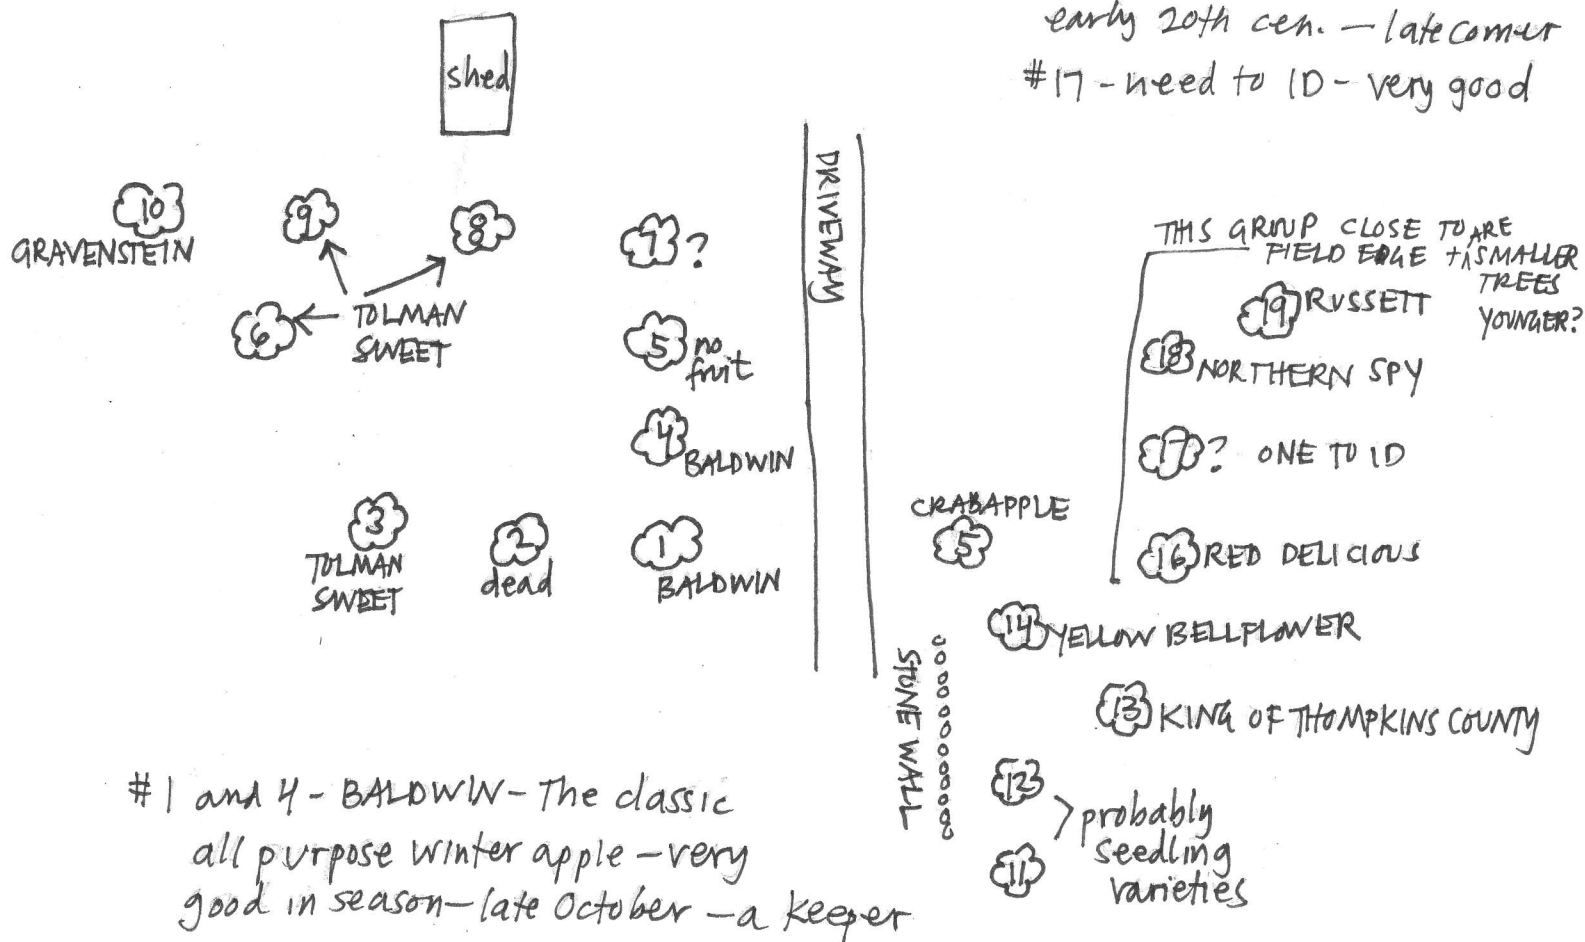 early 20th cen. – latecomer
#17 - need to ID - very good
shed
DRIVEWAY
10
GRAVENSTEIN
9
8
7?
6
TOLMAN
SWEET
5 no
fruit
4
BALDWIN
3
TOLMAN
SWEET
2
dead
1
BALDWIN
THIS GROUP CLOSE TO
FIELD EDGE + ARE SMALLER
TREES
YOUNGER?
19 RUSSETT
18 NORTHERN SPY
17? ONE TO ID
16 RED DELICIOUS
CRABAPPLE
5
14 YELLOW BELLFLOWER
13 KING OF THOMPKINS COUNTY
STONE WALL
12
11
probably
seedling
varieties
#1 and 4 - BALDWIN - The classic
all purpose winter apple - very
good in season - late October - a keeper